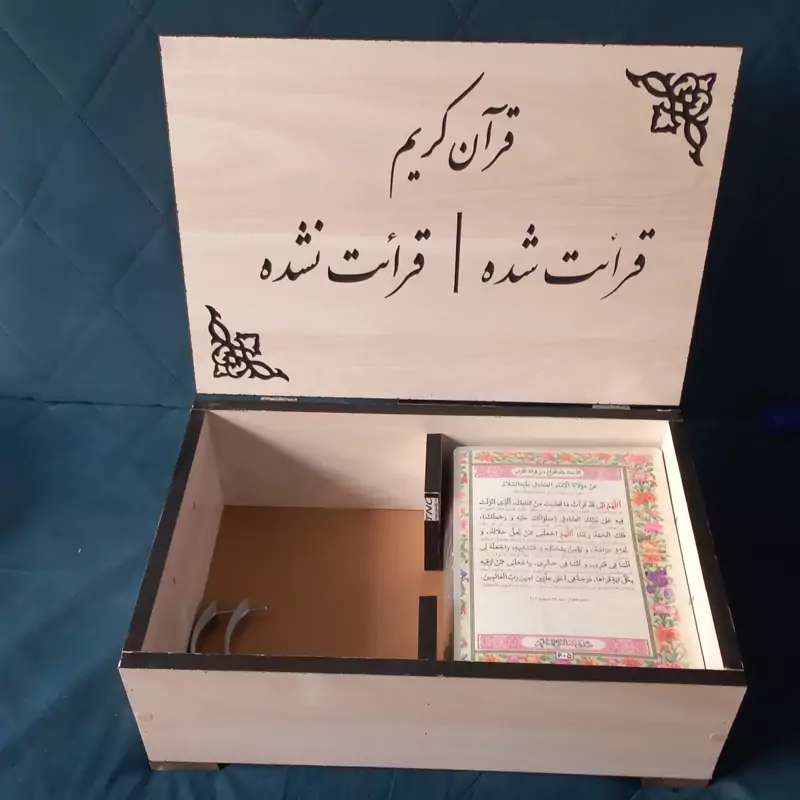 قرآن کریم
قرأئت شده | قرأئت نشده
TNC
الدعاء بعد الفراغ من قرائة القرآن
عن مولانا الامام الصادق علیه‌السلام
اللهم انی قد قرأت ما قضیت من کتابک، الذی انزلت
فیه علی نبیک الصادق (صلواتک علیه و رحمتک)،
فلک الحمد ربنا، اللهم اجعلنی ممن یحل حلاله، و
یحرم حرامه، و یؤمن بمحکمه و متشابهه، واجعله لی
أنسا فی قبری، و أنسا فی حشری، واجعلنی ممن ترقیه
بکل آیة قرأها، درجة فی اعلی علیین، آمین رب العالمین.
۶۰۵